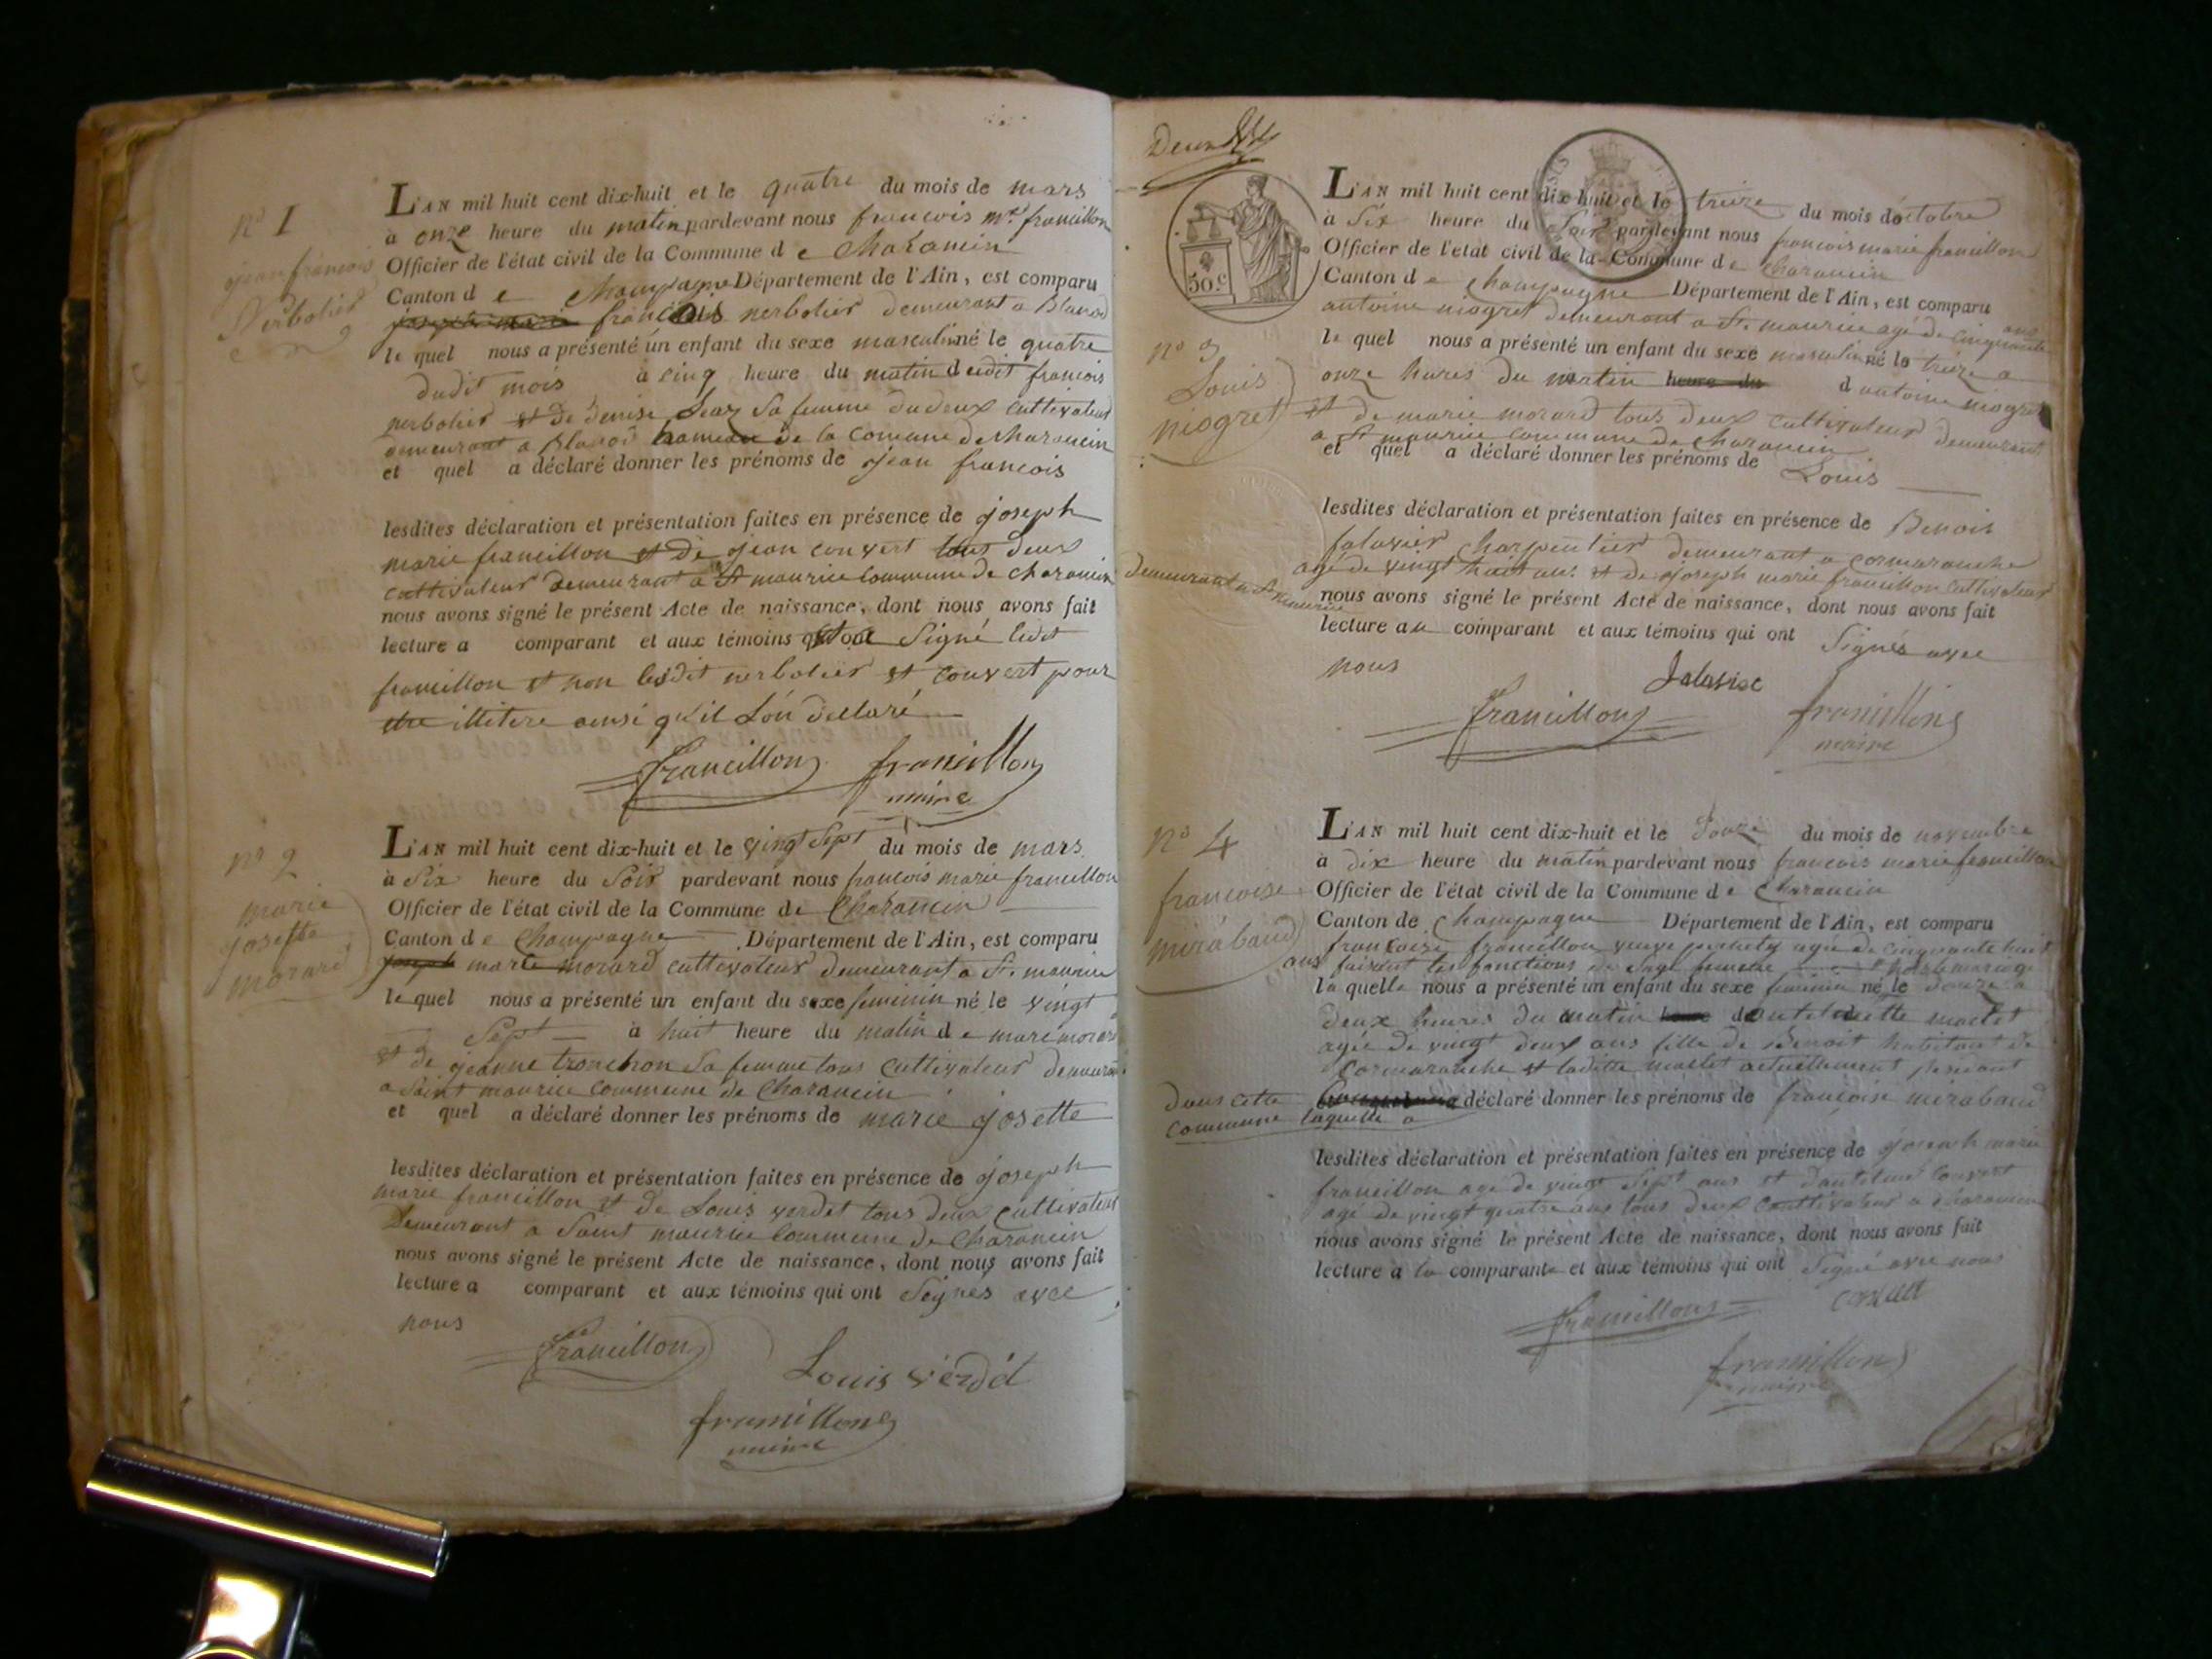 nº 1
jean françois
Nerbolier
L'AN mil huit cent dix-huit et le quatre du mois de mars
à onze heure du matin pardevant nous francois mie francillon
Officier de l'état civil de la Commune d e Charancin
Canton d e Champagne Département de l'Ain, est comparu
françois nerbolier demeurant a Blanod
le quel nous a présenté un enfant du sexe masculin né le quatre
dudit mois à cinq heure du matin d udit francois
nerbolier et de denise sa femme du deux cultivateur
demeurant a hameau de la comune de charancin
et quel a déclaré donner les prénoms de jean francois
lesdites déclaration et présentation faites en présence de joseph
marie francillon et de jean convert tous deux
cultivateur demeurant a St maurice commune de charancin
nous avons signé le présent Acte de naissance, dont nous avons fait
lecture a comparant et aux témoins qui ont Signé ledit
francillon et non lesdit nerbolier et convert pour
etre illitere ainsi qu'il L'on déclaré
francillon francillon
maire
nº 2
marie
josette
morard
L'AN mil huit cent dix-huit et le vingt Sept du mois de mars
à Six heure du Soir pardevant nous francois marie francillon
Officier de l'état civil de la Commune de Charancin
Canton d e Champagne Département de l'Ain, est comparu
joseph marie morard cultivateur demeurant a St. maurice
le quel nous a présenté un enfant du sexe feminin né le vingt
Sept à huit heure du matin d e marie morard
et de jeanne tronchon Sa femme tous cultivateur demeurant
a Saint maurice commune de Charancin
et quel a déclaré donner les prénoms de marie josette
lesdites déclaration et présentation faites en présence de joseph
marie francillon et de Louis verdet tous deux cultivateur
Demeurant a Saint maurice commune de Charancin
nous avons signé le présent Acte de naissance, dont nous avons fait
lecture a comparant et aux témoins qui ont Signés avec
nous
francillon
Louis verdet
francillon
maire
Deux
50.c
nº 3
Louis
niogret
L'AN mil huit cent dix-huit et le treize du mois doctobre
à Six heure du Soir pardevant nous francois marie francillon
Officier de l'état civil de la Commune d e Charancin
Canton d e Champagne Département de l'Ain, est comparu
antoine niogret demeurant a St. maurice agé de cinquante ans
le quel nous a présenté un enfant du sexe masculin né le treize a
onze hures du martin heure du d antoine niogret
et de marie morard tous deux cultivateur demeurant
a St maurice commune de charancin
et quel a déclaré donner les prénoms de Louis
lesdites déclaration et présentation faites en présence de Benois
falavier charpentier demeurant a cormaranche
agé de vingt huit ans. et de joseph marie francillon cultivateur
demeurant a St maurice
nous avons signé le présent Acte de naissance, dont nous avons fait
lecture au comparant et aux témoins qui ont Signés avec
nous
francillon francillon
maire
nº 4
francoise
mirabaud
L'AN mil huit cent dix-huit et le Douze du mois de novembre
à dix heure du matin pardevant nous francois marie francillon
Officier de l'état civil de la Commune d e Charancin
Canton de Champagne Département de l'Ain, est comparu
francoise francillon veuve agée de cinquante huit
ans faisant les fonctions de Sage femme
la quelle nous a présenté un enfant du sexe feminin né le Douze a
deux heures du matin maclet
agée de vingt deux ans fille de Benoit habitant de
Cormaranche et ladite maclet actuellement
Dans cette
commune laquelle a déclaré donner les prénoms de francoise mirabaud
lesdites déclaration et présentation faites en présence de joseph marie
francillon agé de vingt Sept ans et convert
agé de vingt quatre ans tous deux cultivateur a charancin
nous avons signé le présent Acte de naissance, dont nous avons fait
lecture a la comparante et aux témoins qui ont Signé avec nous
francillon convert
francillon
maire